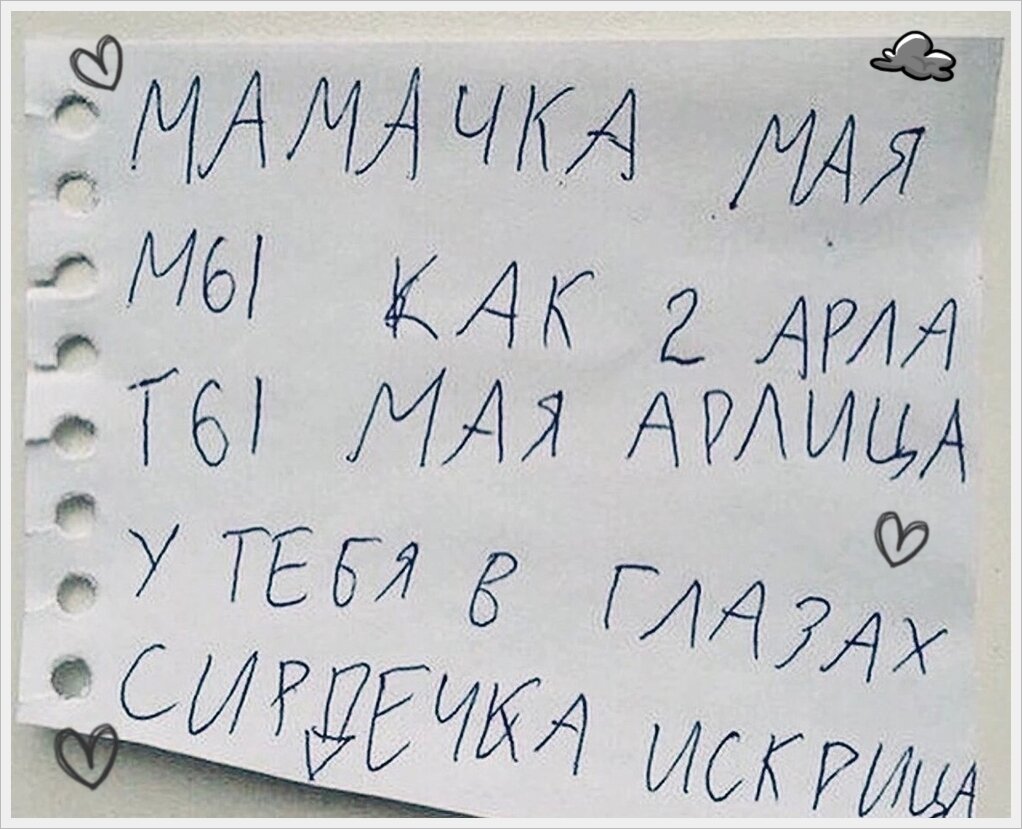 МАМАЧКА МАЯ
МЫ КАК 2 АРЛА
ТЫ МАЯ АРЛИЦА
У ТЕБЯ В ГЛАЗАХ
СИРДЕЧКА ИСКРИЦА